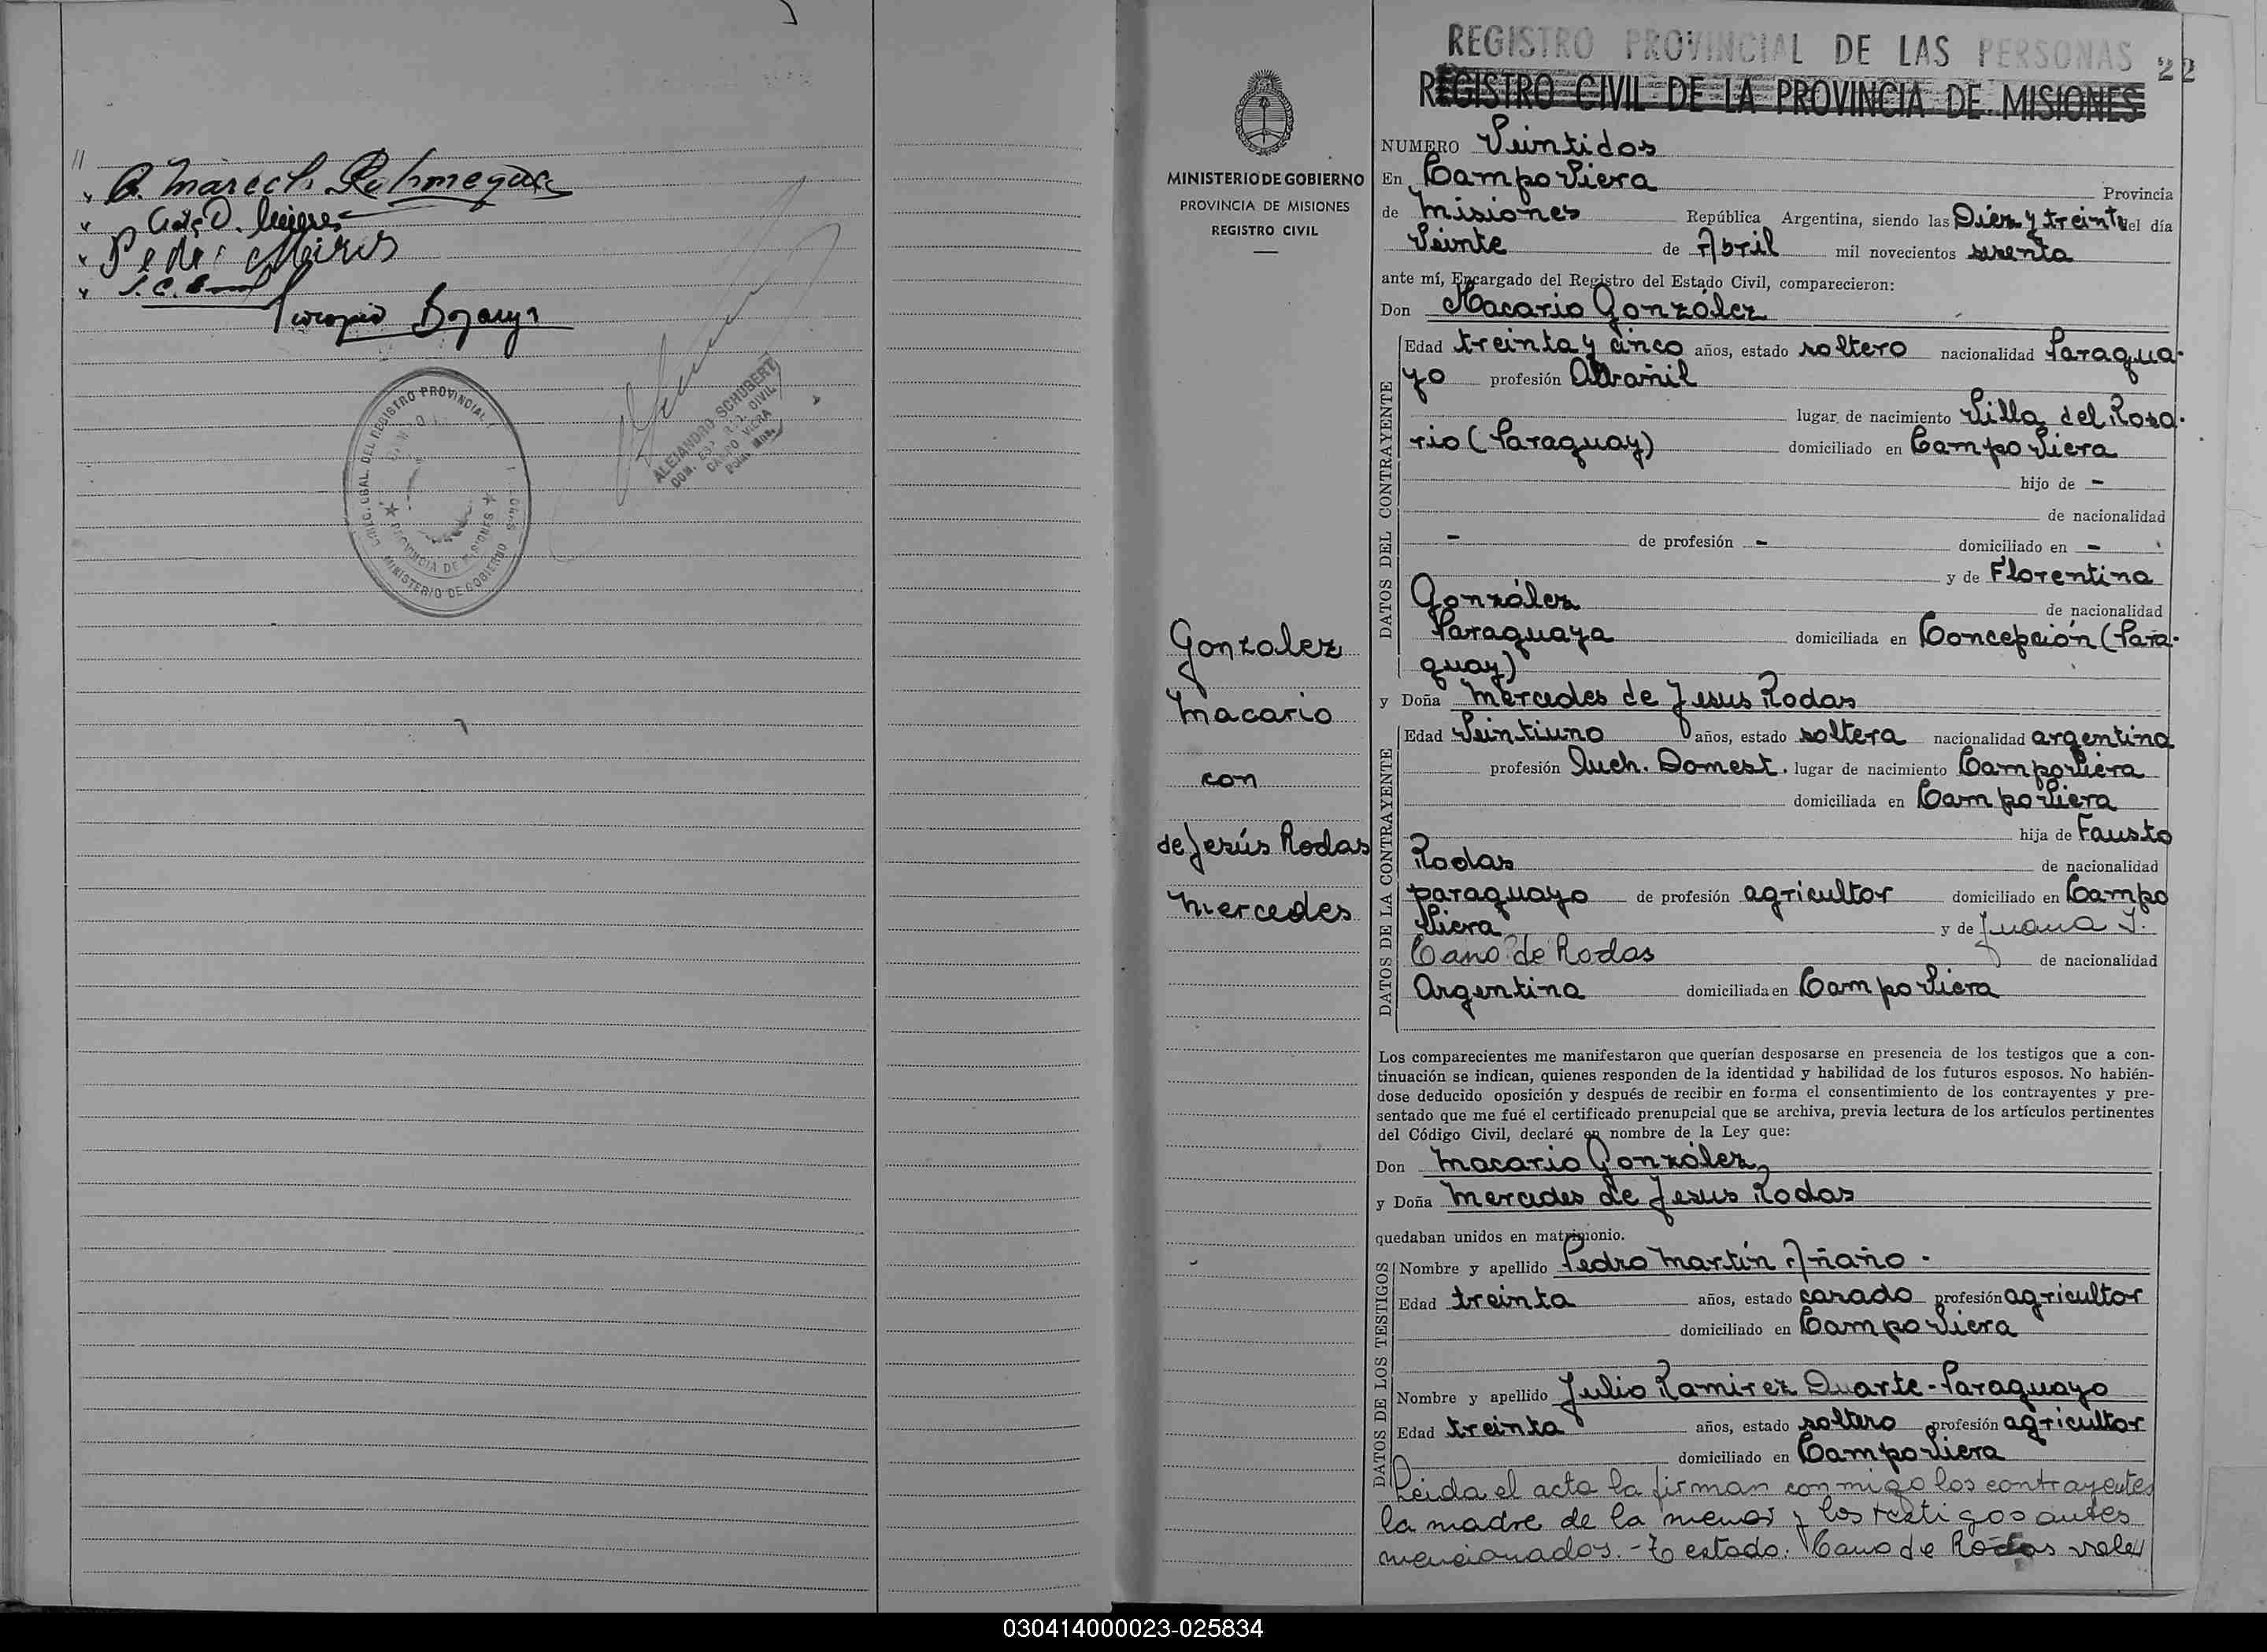 REGISTRO PROVINCIAL
PROVINCIA DE MISIONES
MINISTERIO DE GOBIERNO
ALEJANDRO SCHUBERT
CAMPO VIERA
MINISTERIO DE GOBIERNO
PROVINCIA DE MISIONES
REGISTRO CIVIL
Gonzalez
Macario
con
de Jesús Rodas
Mercedes
REGISTRO PROVINCIAL DE LAS PERSONAS 22
REGISTRO CIVIL DE LA PROVINCIA DE MISIONES
NUMERO Veintidos
En Campo Viera Provincia
de Misiones República Argentina, siendo las Diez y treinta el día
Veinte de Abril mil novecientos sesenta
ante mí, Encargado del Registro del Estado Civil, comparecieron:
Don Macario González
DATOS DEL CONTRAYENTE
Edad treinta y cinco años, estado soltero nacionalidad Paragua-
yo profesión Albañil
lugar de nacimiento Villa del Rosa-
rio (Paraguay) domiciliado en Campo Viera
hijo de -
de nacionalidad
- de profesión - domiciliado en -
y de Florentina
González de nacionalidad
Paraguaya domiciliada en Concepción (Para-
guay)
y Doña Mercedes de Jesus Rodas
DATOS DE LA CONTRAYENTE
Edad Veintiuno años, estado soltera nacionalidad argentina
profesión Queh. Domest. lugar de nacimiento Campo Viera
domiciliada en Campo Viera
hija de Fausto
Rodas de nacionalidad
paraguayo de profesión agricultor domiciliado en Campo
Viera y de Juana I.
Cano de Rodas de nacionalidad
Argentina domiciliada en Campo Viera
Los comparecientes me manifestaron que querían desposarse en presencia de los testigos que a con-
tinuación se indican, quienes responden de la identidad y habilidad de los futuros esposos. No habién-
dose deducido oposición y después de recibir en forma el consentimiento de los contrayentes y pre-
sentado que me fué el certificado prenupcial que se archiva, previa lectura de los artículos pertinentes
del Código Civil, declaré en nombre de la Ley que:
Don Macario González
y Doña Mercedes de Jesus Rodas
quedaban unidos en matrimonio.
DATOS DE LOS TESTIGOS
Nombre y apellido Pedro Martín Añaño -
Edad treinta años, estado casado profesión agricultor
domiciliado en Campo Viera
Nombre y apellido Julio Ramirez Duarte - Paraguayo
Edad treinta años, estado soltero profesión agricultor
domiciliado en Campo Viera
Leida el acta la firman conmigo los contrayentes
la madre de la menor y los testigos antes
mencionados. - Testado: Cano de Rodas vale
030414000023-025834